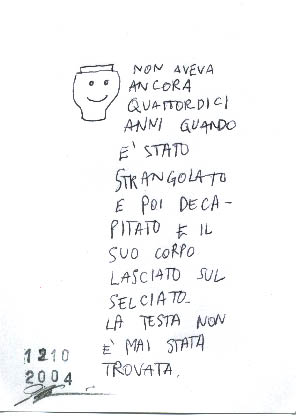 NON AVEVA
ANCORA
QUATTORDICI
ANNI QUANDO
E' STATO
STRANGOLATO
E POI DECA-
PITATO E IL
SUO CORPO
LASCIATO SUL
SELCIATO.
LA TESTA NON
E' MAI STATA
TROVATA.
1210
2004